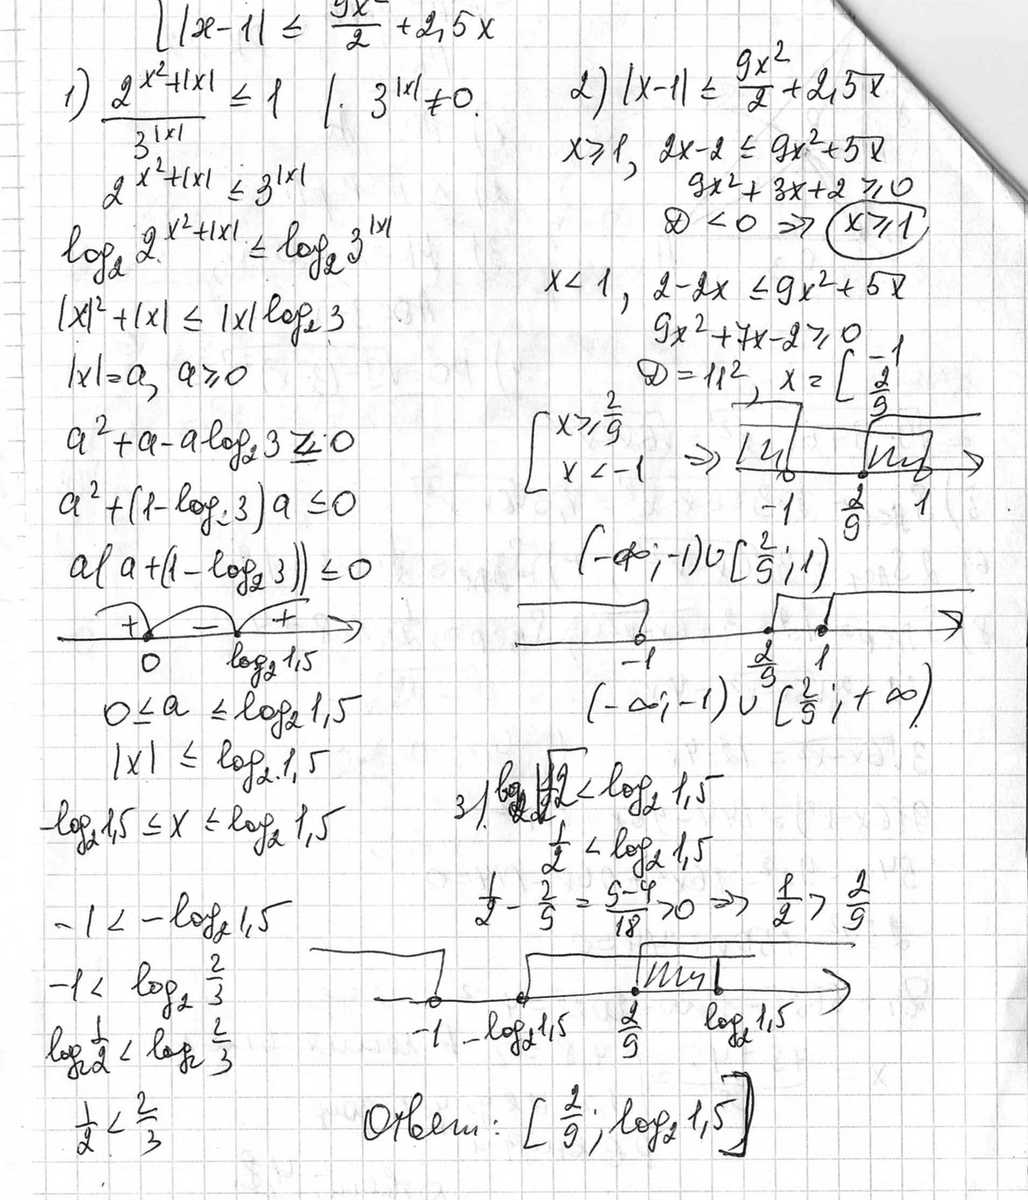 [ |x-1| ≤ 9x²/2 + 2,5x
1) 2^(x²+|x|) / 3^|x| ≤ 1 | · 3^|x| ≠ 0.
2^(x²+|x|) ≤ 3^|x|
log₂ 2^(x²+|x|) ≤ log₂ 3^|x|
|x|² + |x| ≤ |x| log₂ 3
|x| = a, a ≥ 0
a² + a - a log₂ 3 ≤ 0
a² + (1 - log₂ 3) a ≤ 0
a( a + (1 - log₂ 3)) ≤ 0
+ - +
0 log₂ 1,5
0 ≤ a ≤ log₂ 1,5
|x| ≤ log₂ 1,5
-log₂ 1,5 ≤ x ≤ log₂ 1,5
-1 < -log₂ 1,5
-1 < log₂ 2/3
log₂ 1/2 < log₂ 2/3
1/2 < 2/3
2) |x-1| ≤ 9x²/2 + 2,5x
x ≥ 1, 2x-2 ≤ 9x²+5x
9x² + 3x + 2 ≥ 0
D < 0 => x ≥ 1
x < 1, 2-2x ≤ 9x² + 5x
9x² + 7x - 2 ≥ 0
D = 11², x = [ -1
2/9
[ x ≥ 2/9
x < -1 =>
-1 2/9 1
(-∞; -1) ∪ [2/9; 1)
-1 2/9 1
(-∞; -1) ∪ [2/9; +∞)
3) log₂ √2 < log₂ 1,5
1/2 < log₂ 1,5
1/2 - 2/9 = 9-4/18 > 0 => 1/2 > 2/9
-1 -log₂ 1,5 2/9 log₂ 1,5
Ответ: [2/9; log₂ 1,5]